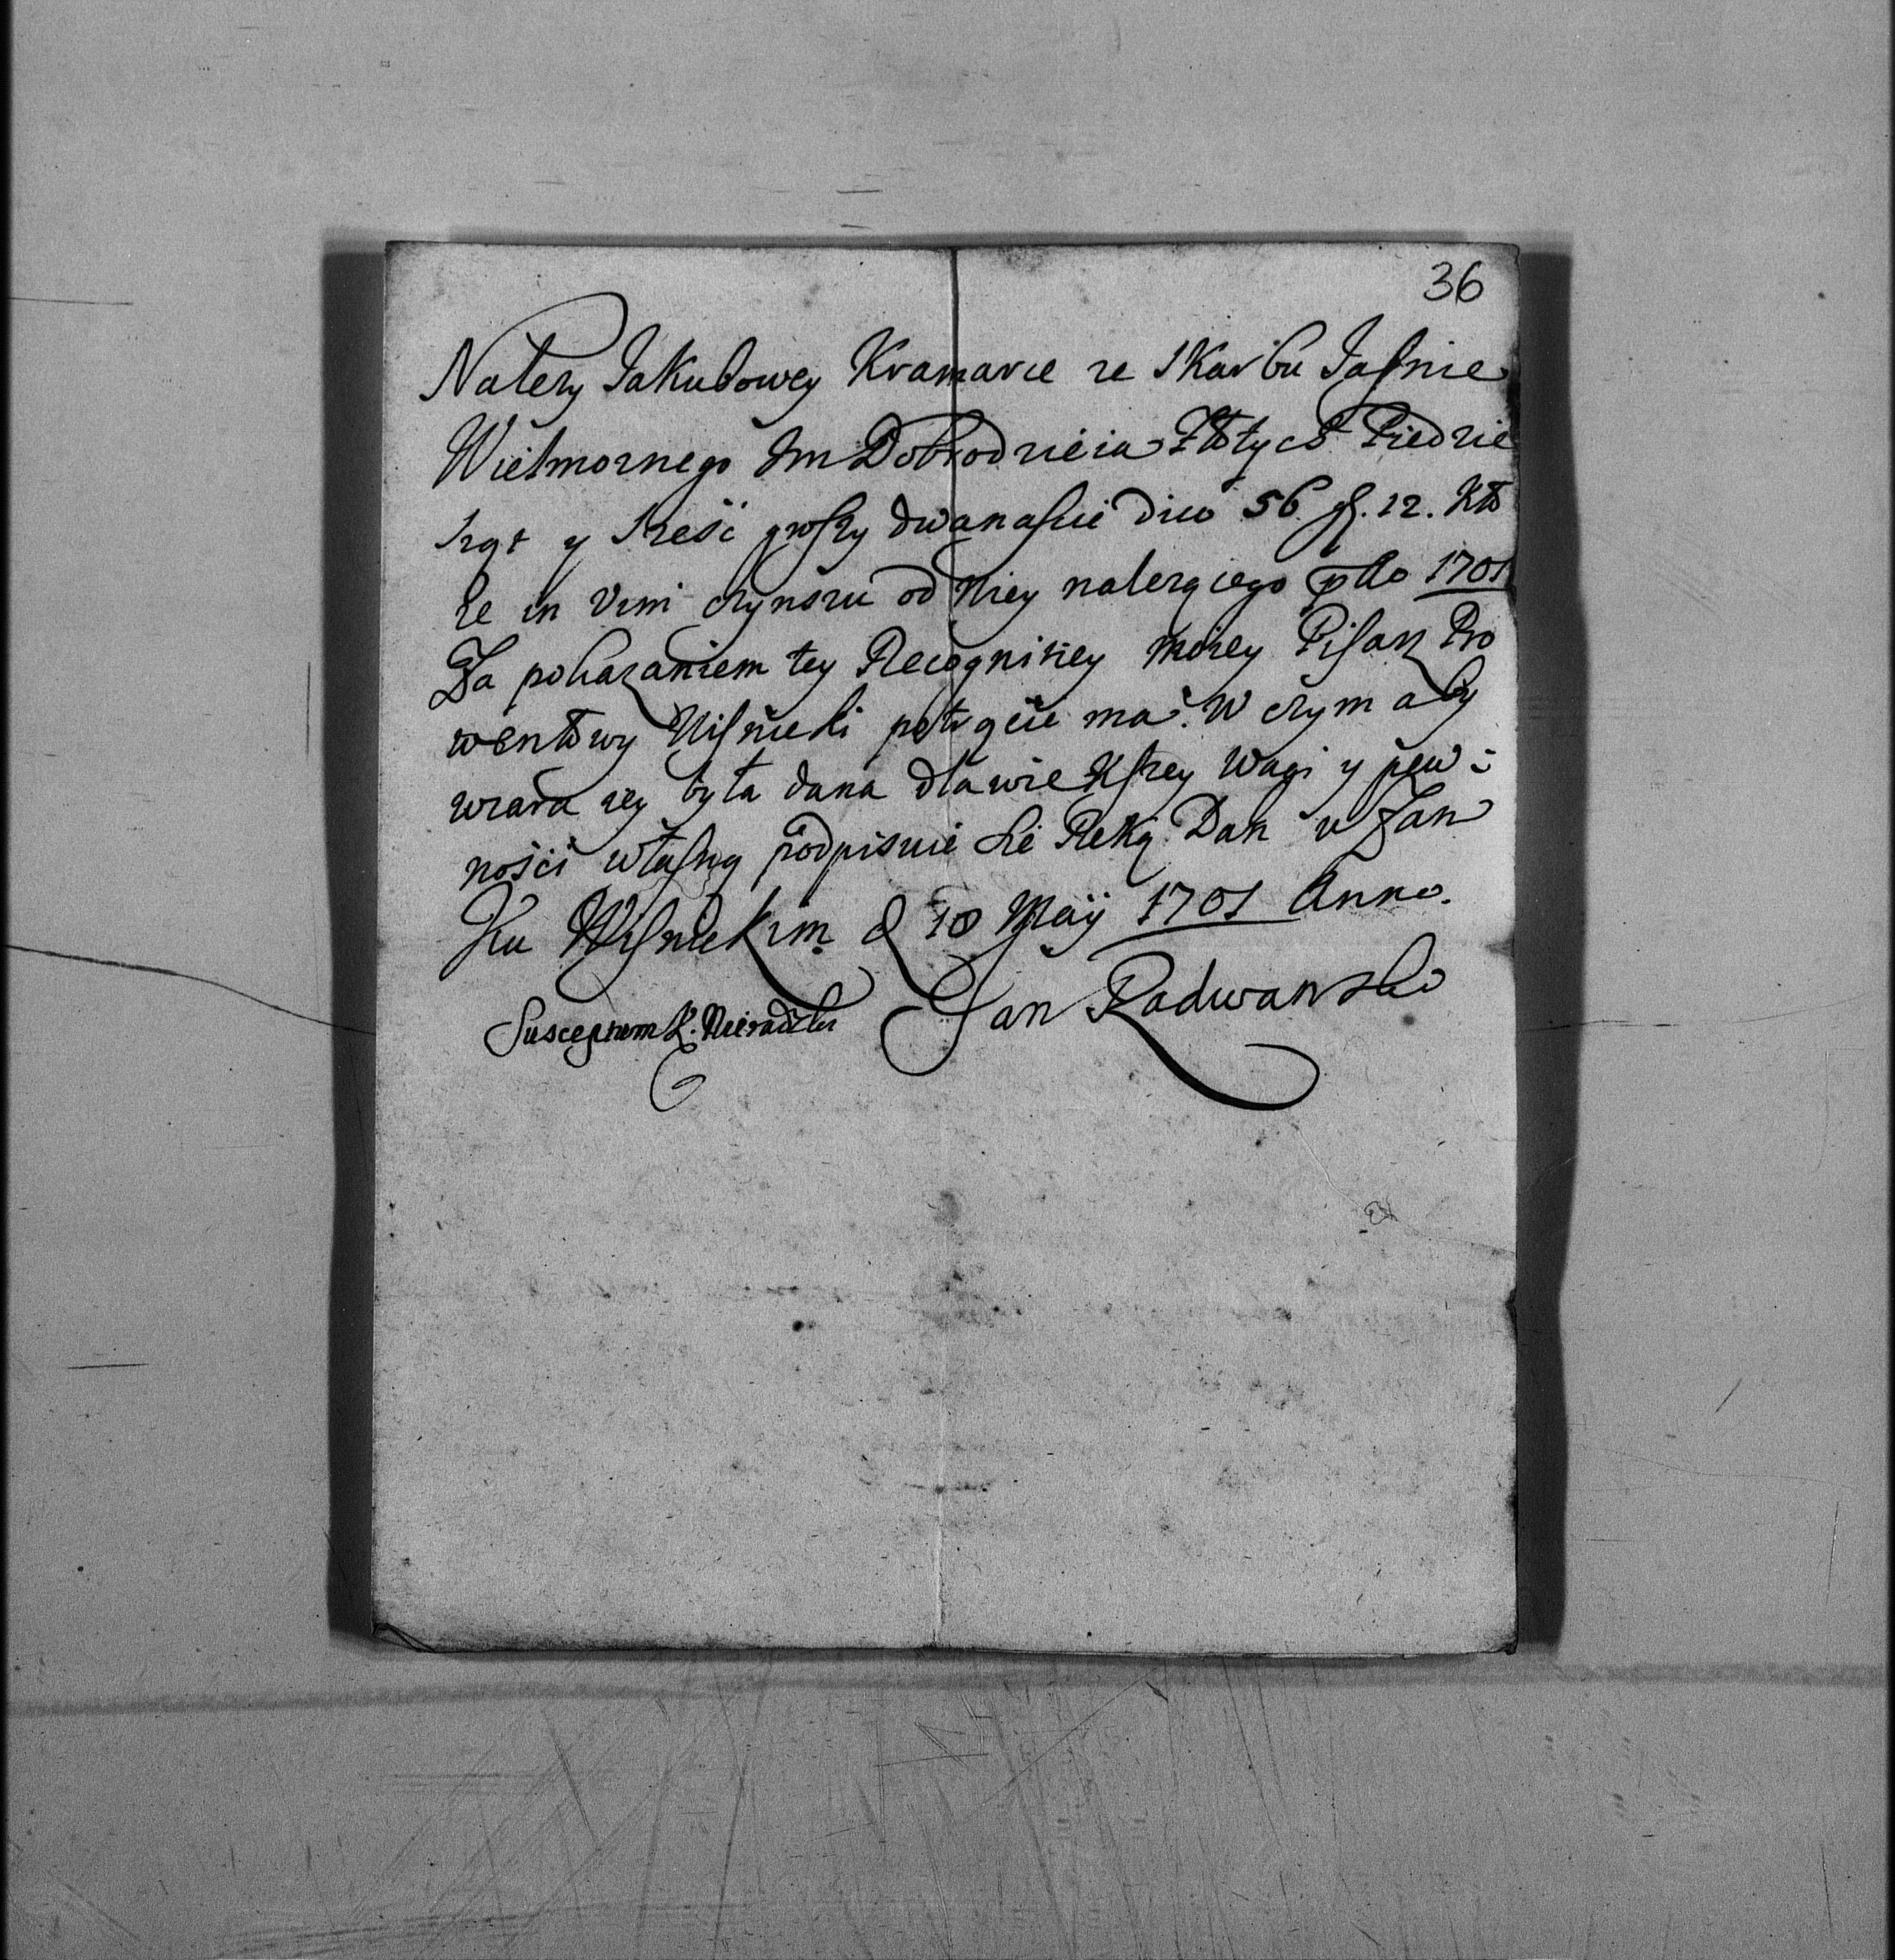 36
Nalezy Jakubowey Kramarce ze Skarbu Jasnie
Wielmoznego Jm Dobrodzieia Złotych Piedzie
siąt y szesć groszy dwanascie dico 56 gr. 12. Kto
re in vim czynszu od Niey nalezącego pro Ao 1701
Za pokazaniem tey Recogniciey moiey Pisarz Pro
wentowy Wisnicki potrącic ma. W czym aby
wiara iey była dana dla wiekszey Wagi y pew
ności własną podpisuie sie Ręką Dan w Zam
Ku Wisnickim d 10 Maij 1701 Anno.
Jan Radwanski
Susceptum